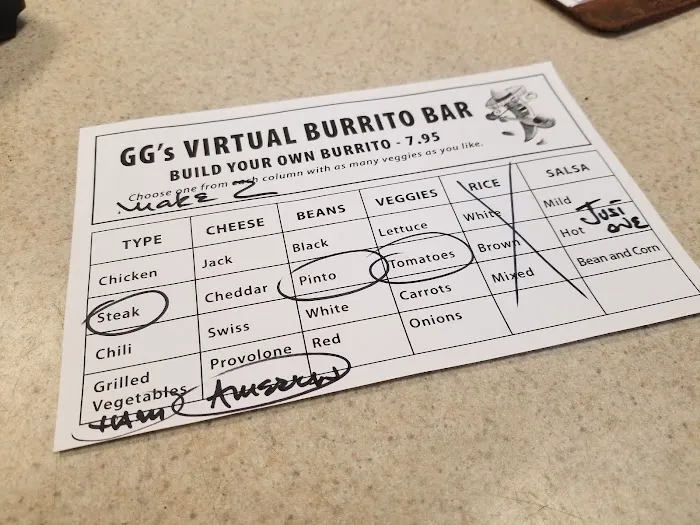 GG's VIRTUAL BURRITO BAR
BUILD YOUR OWN BURRITO - 7.95
Choose one from each column with as many veggies as you like.
Make 2
TYPE CHEESE BEANS VEGGIES RICE SALSA
Chicken Jack Black Lettuce White Mild
Steak Cheddar Pinto Tomatoes Brown Hot JUST ONE
Chili Swiss White Carrots Mixed Bean and Corn
Grilled Vegetables Provolone Red Onions
HAM AMERICAN